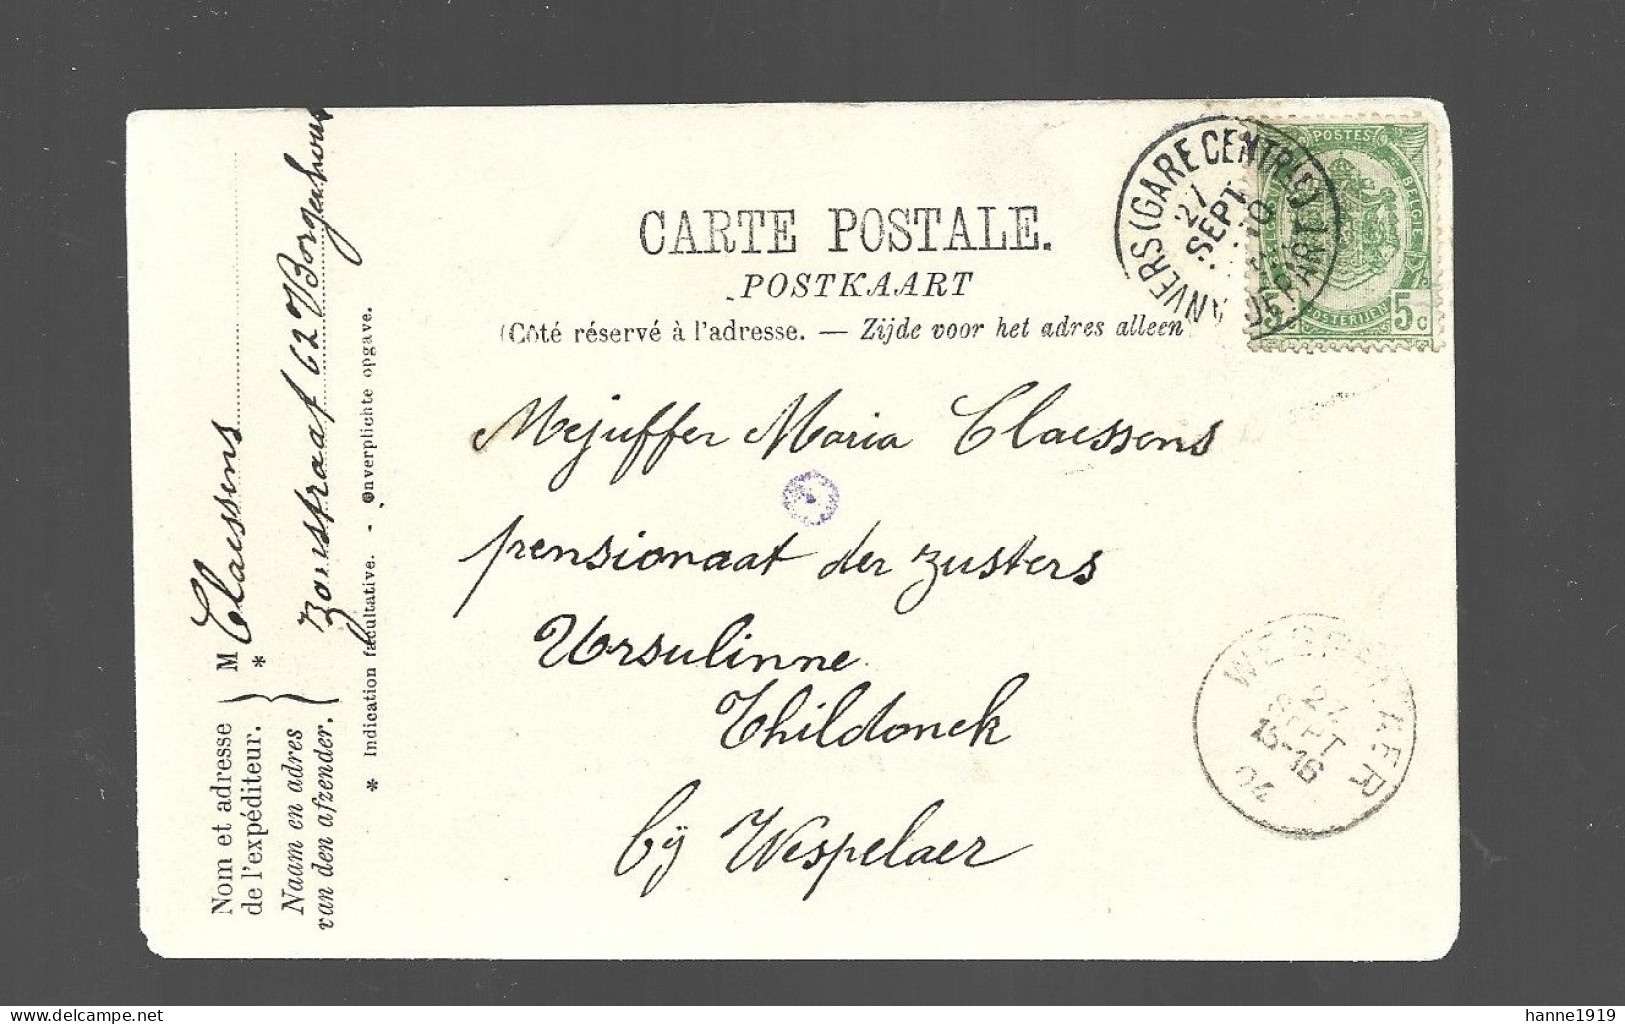 CARTE POSTALE.
POSTKAART
(Côté réservé à l'adresse. — Zijde voor het adres alleen
POSTES
BELGIQUE
5 c
ANVERS (GARE CENTRALE)
27
SEPT
10
DEPART
Mejuffer Maria Claessens
pensionaat der zusters
Ursulinne
Thildonck
bÿ Wespelaer
27
SEPT
15-16
04
Nom et adresse
de l'expéditeur.
Naam en adres
van den afzender.
M
*
Claessens
62 Borgerhout
* Indication facultative. - Onverplichte opgave.
hanne1919